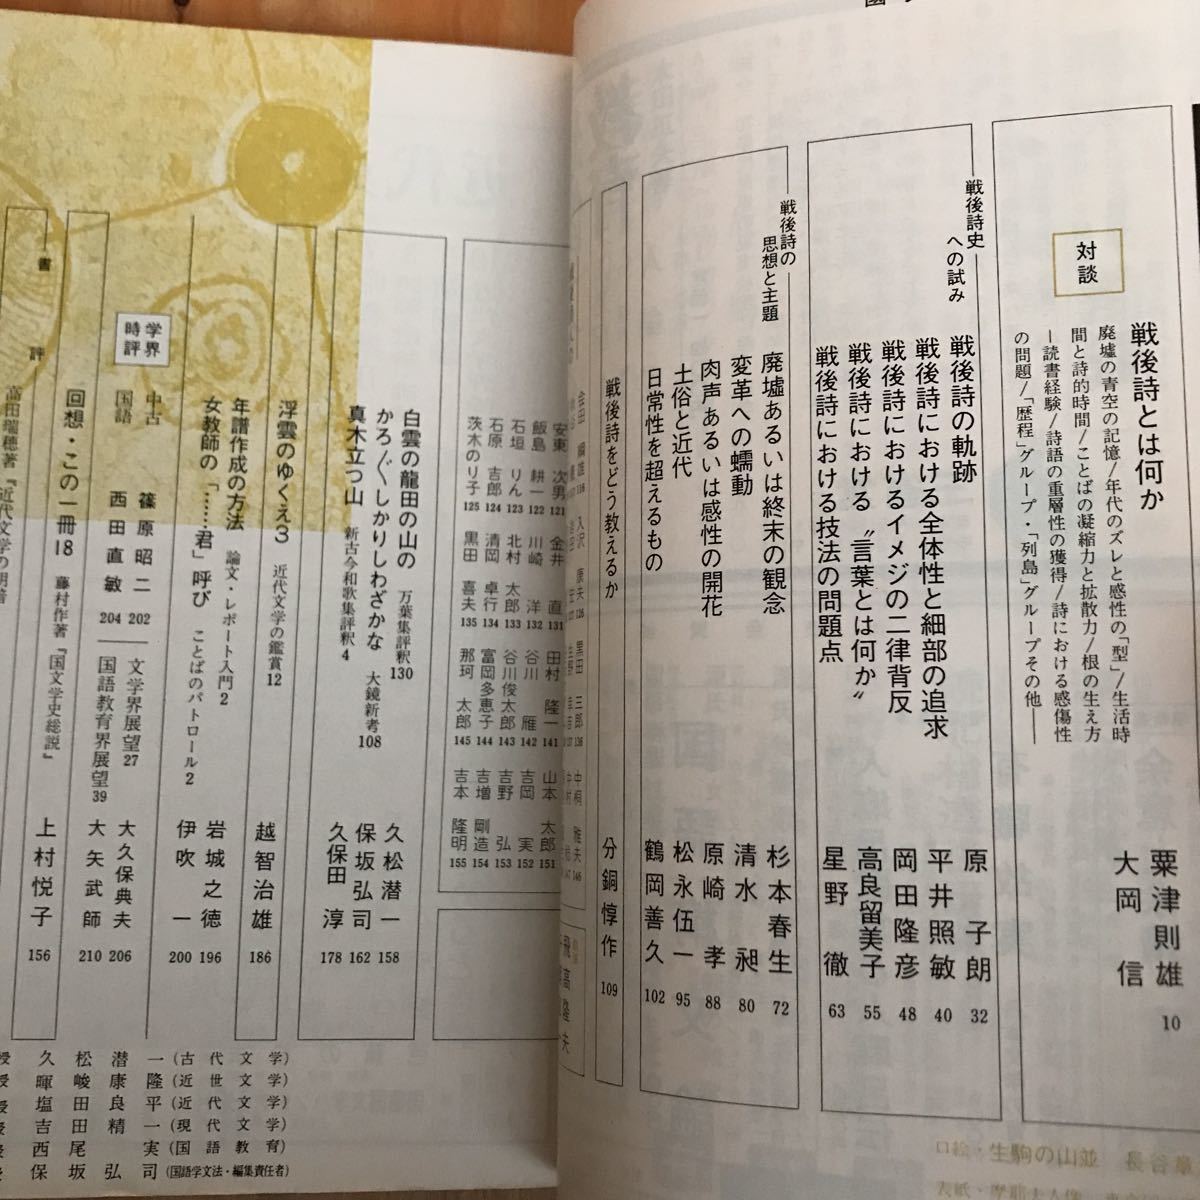 対談
戦後詩とは何か
廃墟の青空の記憶/年代のズレと感性の「型」/生活時
間と詩的時間/ことばの凝縮力と拡散力/根の生え方
―読書経験/詩語の重層性の獲得/詩における感傷性
の問題/「歴程」グループ・「列島」グループその他――
粟津則雄
大岡 信
10
戦後詩史
への試み
戦後詩の軌跡 原 子朗 32
戦後詩における全体性と細部の追求 平井照敏 40
戦後詩におけるイメジの二律背反 岡田隆彦 48
戦後詩における〝言葉とは何か〟 高良留美子 55
戦後詩における技法の問題点 星野 徹 63
戦後詩の
思想と主題
廃墟あるいは終末の観念 杉本春生 72
変革への蠕動 清水 昶 80
肉声あるいは感性の開花 原崎 孝 88
土俗と近代 松永伍一 95
日常性を超えるもの 鶴岡善久 102
戦後詩をどう教えるか 分銅惇作 109
安東 次男 121 金井 直 131 田村 隆一 141 山本 太郎 151
飯島 耕一 122 川崎 洋 132 谷川 雁 142 吉岡 実 152
石垣 りん 123 北村 太郎 133 谷川俊太郎 143 吉野 弘 153
石原 吉郎 124 清岡 卓行 134 富岡多恵子 144 吉増 剛造 154
茨木のり子 125 黒田 喜夫 135 那珂 太郎 145 吉本 隆明 155
白雲の龍田の山の 万葉集評釈130 久松潜一 158
かろ〴〵しかりしわざかな 大鏡新考108 保坂弘司 162
真木立つ山 新古今和歌集評釈4 久保田 淳 178
浮雲のゆくえ3 近代文学の鑑賞12 越智治雄 186
年譜作成の方法 論文・レポート入門2 岩城之徳 196
女教師の「……君」呼び ことばのパトロール2 伊吹 一 200
学界
時評
中古 篠原昭二 202
国語 西田直敏 204
文学界展望27 大久保典夫 206
国語教育界展望39 大矢武師 210
回想・この一冊18 藤村作著『国文学史総説』 上村悦子 156
書評
高田瑞穂著『近代文学の明暗
久松潜一(古代文学)
暉峻康隆(近世文学)
塩田良平(近代文学)
吉田精一(現代文学)
西尾 実(国語教育)
保坂弘司(国語学文法・編集責任者)
口絵・生駒の山並 長谷章